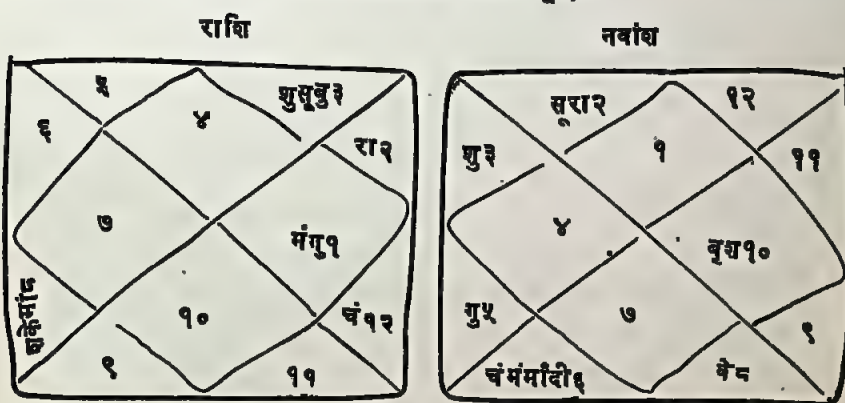 राशि
५
४
शुसूबु३
६
रा२
७
मंगु१
१०
चं१२
९
११
नवांश
सूरा२
१२
शु३
१
११
४
बृश१०
गु५
७
९
चंमंमांदी६
के८